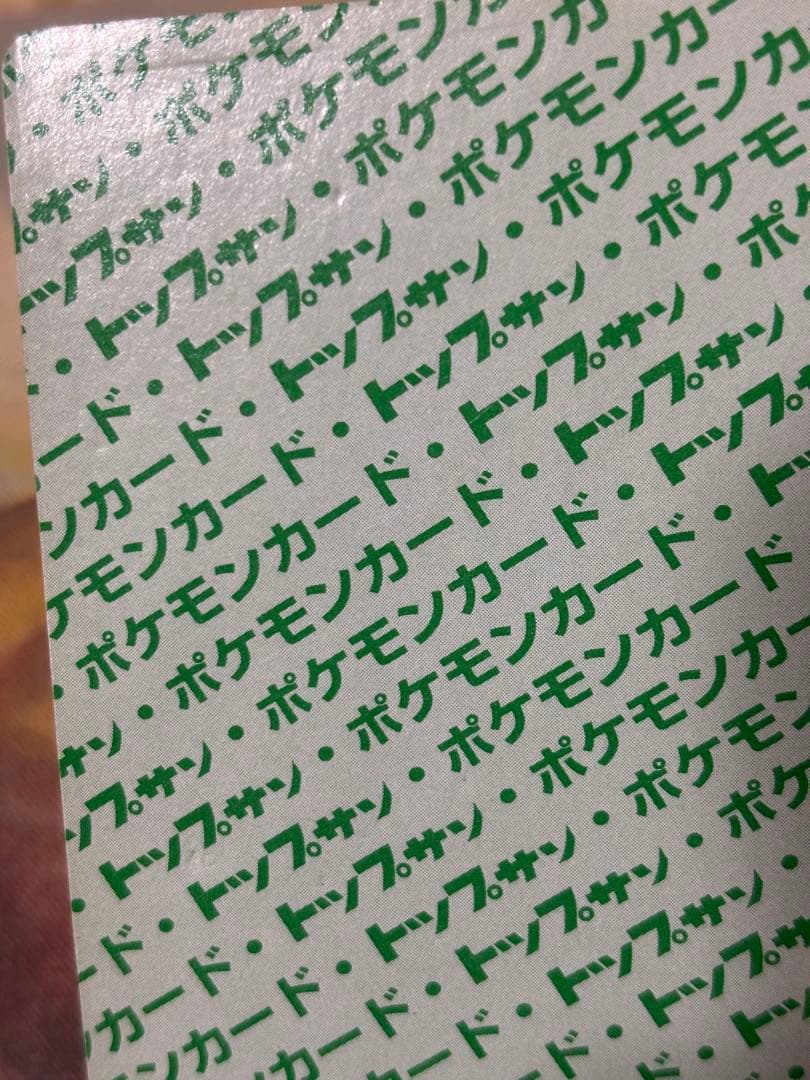 ・ポケモン
プサン・ポケモンカ
トップサン・ポケモンカ
・トップサン・ポケモンカ
ード・トップサン・ポケモンカー
ンカード・トップサン・ポケモンカ
ケモンカード・トップサン・ポケモ
・ポケモンカード・トップサン・ポケ
サン・ポケモンカード・トップサン・
ップサン・ポケモンカード・トップサ
・トップサン・ポケモンカード・トッ
ード・トップサン・ポケモンカード
カード・トップサン・ポケモンカー
ンカード・トップサン・ポケモン
カード・トップサン・ポケ
ード・トップサン・
ド・トップサ
ド・トッ